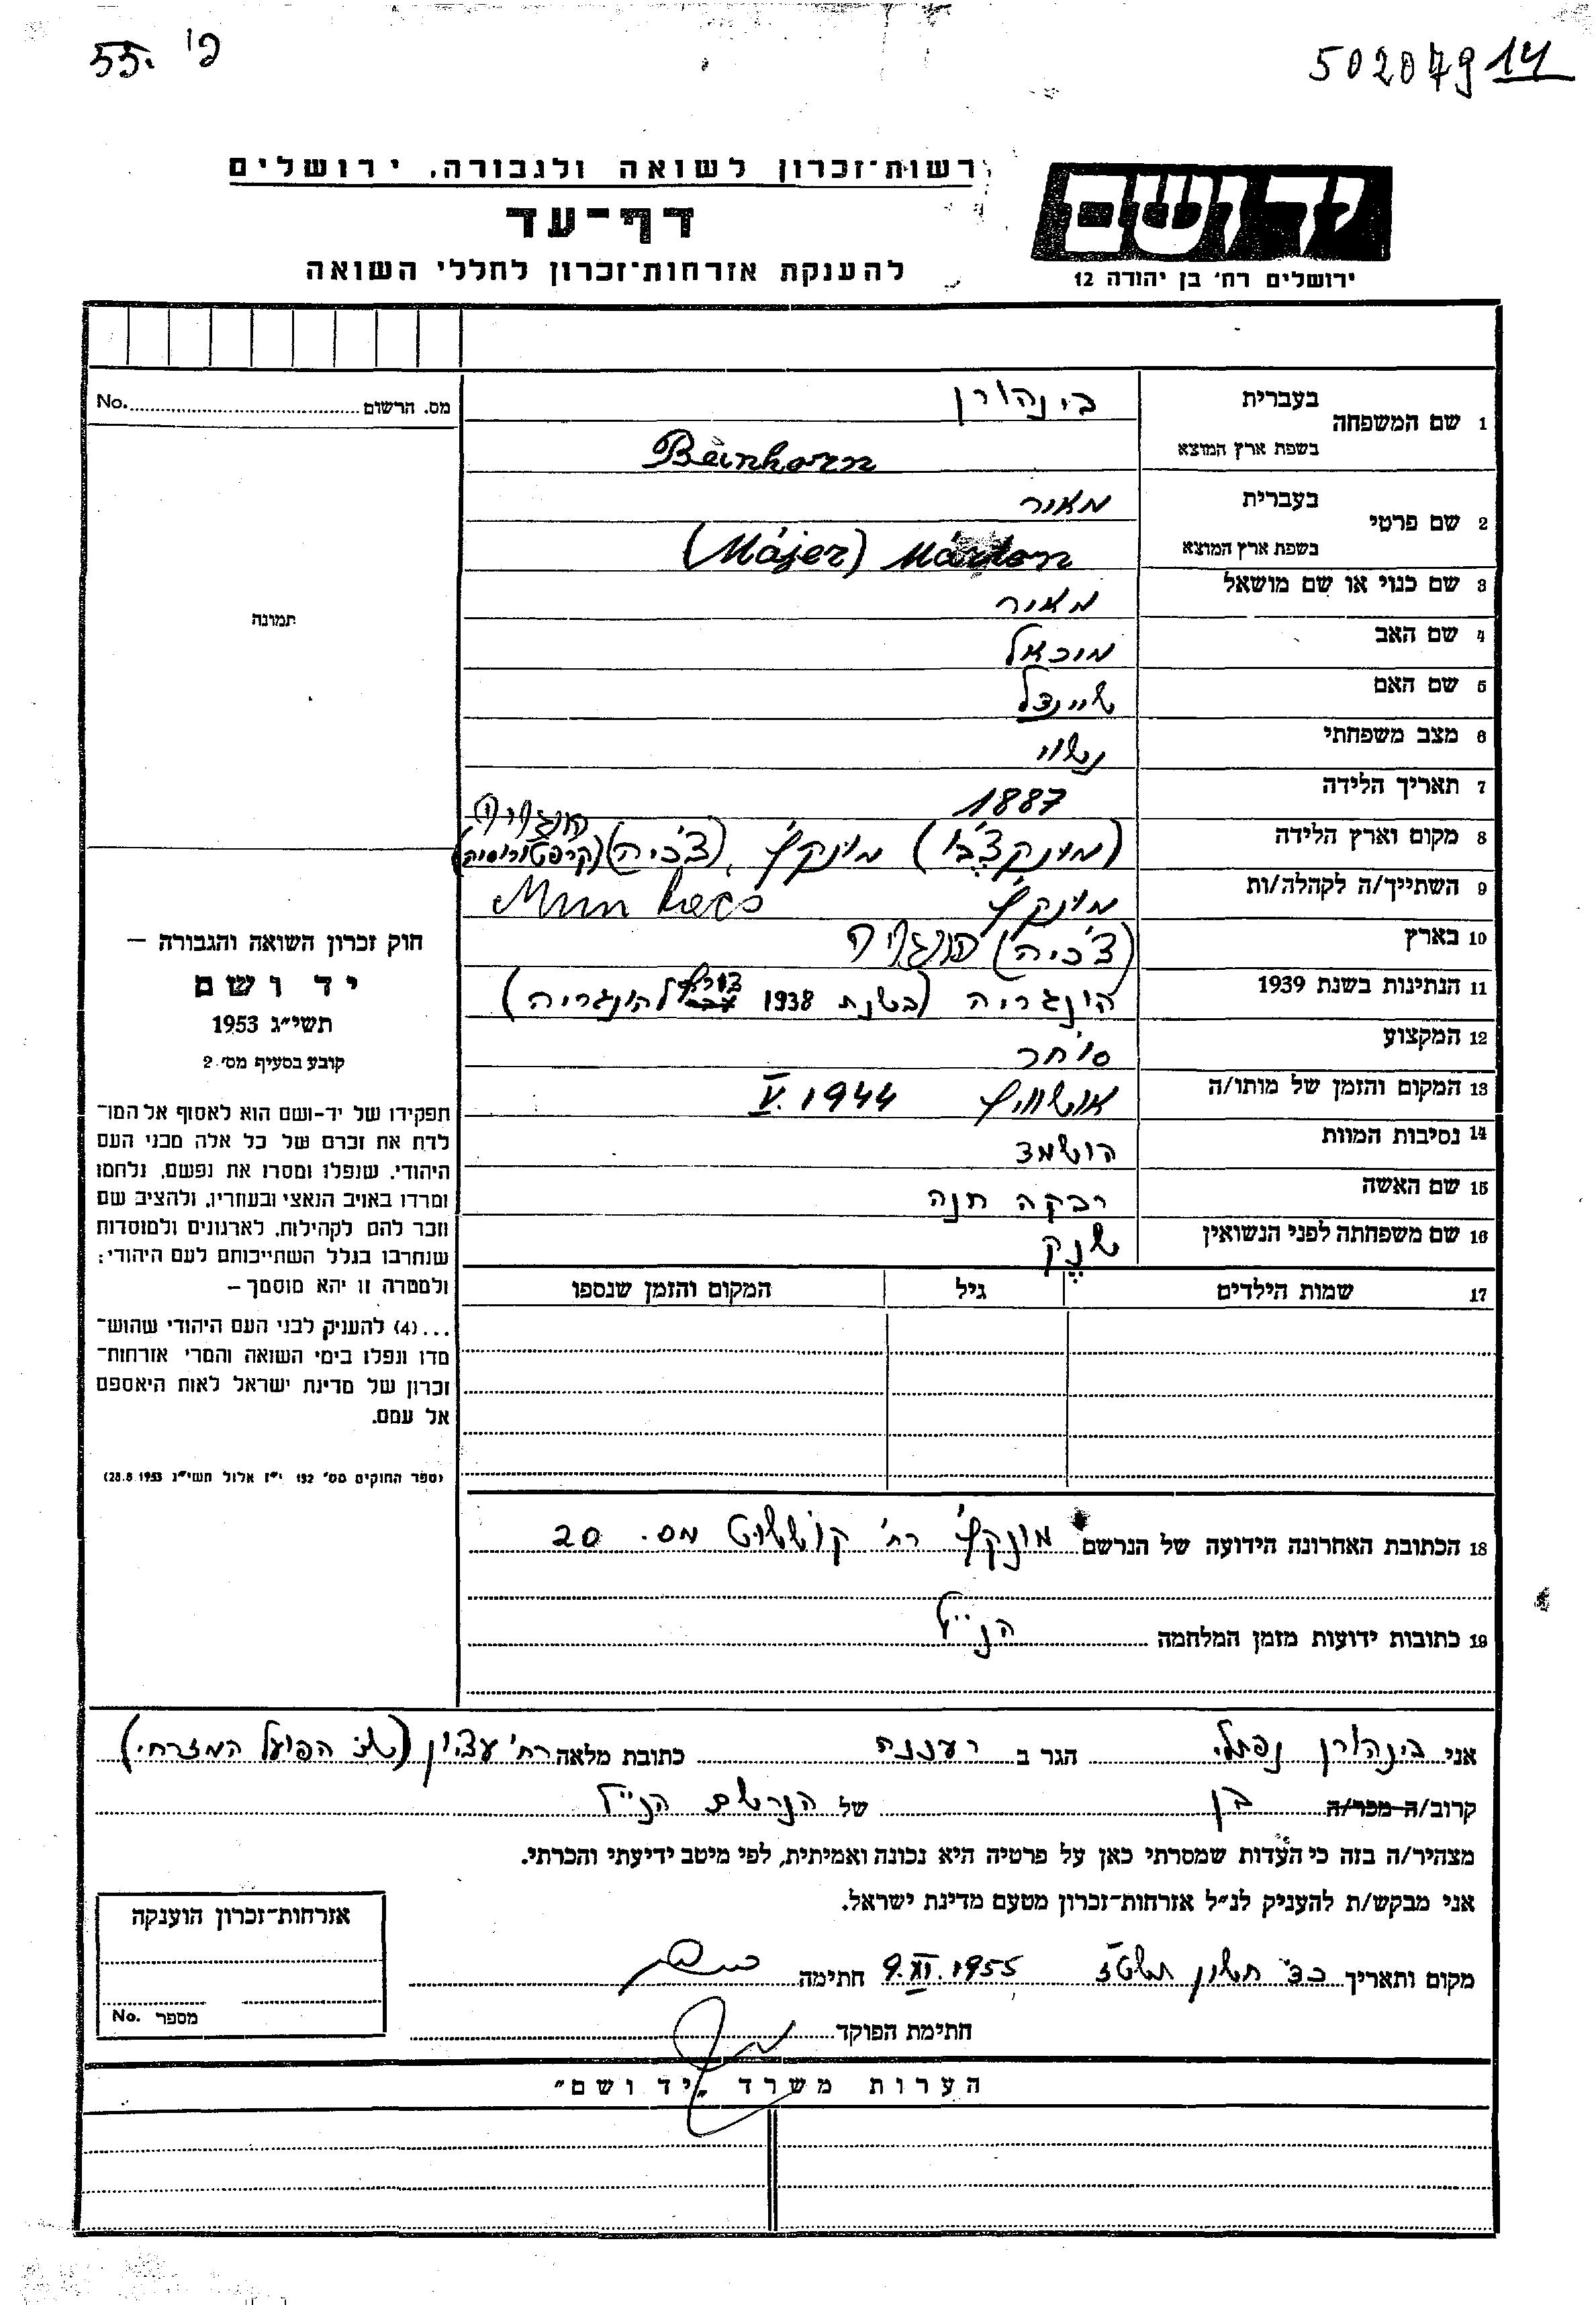 55. פ'
50207914
רשות־זכרון לשואה ולגבורה, ירושלים
דף־עד
להענקת אזרחות־זכרון לחללי השואה
יד ושם
ירושלים רח' בן יהודה 12
מס. הרשום No.
תמונה
1 שם המשפחה
בעברית בינהורן
בשפת ארץ המוצא Beinhorn
2 שם פרטי
בעברית מאיר
בשפת ארץ המוצא Márton (Májer)
3 שם כנוי או שם מושאל מאיר
4 שם האב מיכאל
5 שם האם שיינדל
6 מצב משפחתי נשוי
7 תאריך הלידה 1887
8 מקום וארץ הלידה (מונקצ'בו) מונקץ', (צ'כיה) (קרפטורוסיה) הונגריה
9 השתייך/ה לקהלה/ות מונקץ' Munkacs
10 בארץ (צ'כיה) הונגריה
11 הנתינות בשנת 1939 הונגריה (בשנת 1938 צורף להונגריה)
12 המקצוע סוחר
13 המקום והזמן של מותו/ה אושוויץ V.1944
14 נסיבות המוות הושמד
15 שם האשה רבקה חנה
16 שם משפחתה לפני הנשואין שנק
17 שמות הילדים גיל המקום והזמן שנספו
חוק זכרון השואה והגבורה –
יד ושם
תשי״ג 1953
קובע בסעיף מס׳ 2
תפקידו של יד-ושם הוא לאסוף אל המו־
לדת את זכרם של כל אלה מבני העם
היהודי, שנפלו ומסרו את נפשם, נלחמו
ומרדו באויב הנאצי ובעוזריו, ולהציב שם
וזכר להם לקהילות, לארגונים ולמוסדות
שנחרבו בגלל השתייכותם לעם היהודי;
ולמטרה זו יהא מוסמך –
...(4) להעניק לבני העם היהודי שהוש־
מדו ונפלו בימי השואה והמרי אזרחות־
זכרון של מדינת ישראל לאות היאספם
אל עמם.
(ספר החוקים מס׳ 132 י״ז אלול תשי״ג 28.8.1953)
18 הכתובת האחרונה הידועה של הנרשם מונקץ' רח' קוששוט מס. 20
19 כתובות ידועות מזמן המלחמה הנ״ל
אני בינהורן נפתלי הגר ב רעננה כתובת מלאה רח' עציון (שכ' הפועל המזרחי)
קרוב/ה מכר/ה בן של הנרשם הנ״ל
מצהיר/ה בזה כי העדות שמסרתי כאן על פרטיה היא נכונה ואמיתית, לפי מיטב ידיעתי והכרתי.
אני מבקש/ת להעניק לנ״ל אזרחות־זכרון מטעם מדינת ישראל.
מקום ותאריך כד' חשון תשט״ז 9.XI.1955 חתימה
חתימת הפוקד
אזרחות־זכרון הוענקה
מספר No.
הערות משרד „יד ושם״